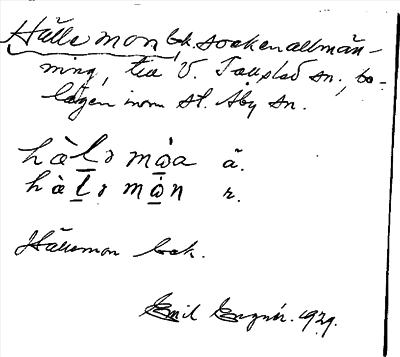 Hälle mon, bk. sockenallmän-
ning, till V. Tollstad sn., be-
lägen inom St. Åby sn.
hàlə mωa ä.
hàlə mòn r.
Hällemon bek.
Emil 1929.